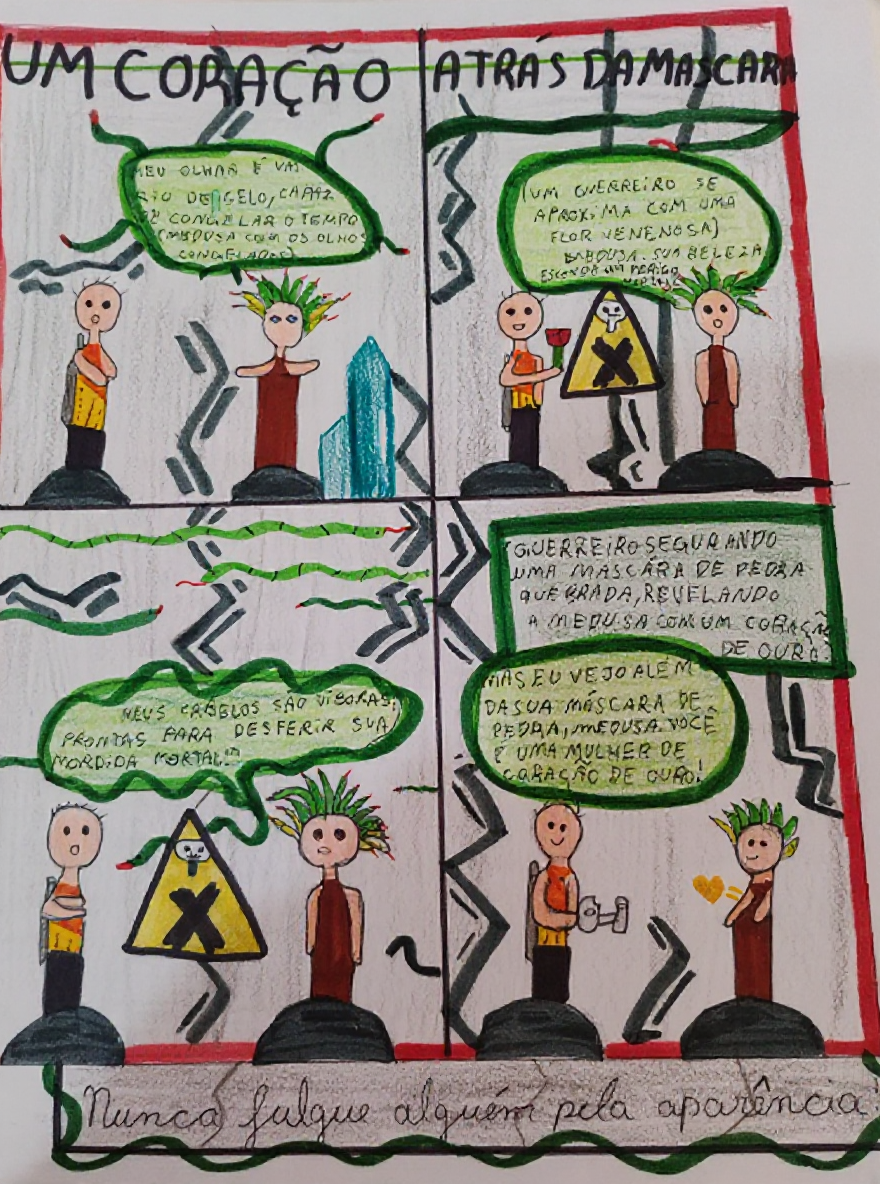 UM CORAÇÃO ATRÁS DA MASCARA
MEU OLHAR É VA
RIO DE GELO, CAPAZ
DE CONGELAR O TEMPO
(MEDUSA COM OS OLHOS
CONGELADOS)
(UM GUERREIRO SE
APROXIMA COM UMA
FLOR VENENOSA)
SUA BELEZA
ESCONDE UM PERIGO
MEUS CABELOS SÃO VÍBORAS,
PRONTAS PARA DESFERIR SUA
MORDIDA MORTAL!
(GUERREIRO SEGURANDO
UMA MASCÁRA DE PEDRA
QUEBRADA, REVELANDO
A MEDUSA COM UM CORAÇÃO
DE OURO.
MAS EU VEJO ALÉM
DA SUA MÁSCARA DE
PEDRA, MEDUSA. VOCÊ
É UMA MULHER DE
CORAÇÃO DE OURO!
Nunca julgue alguém pela aparência